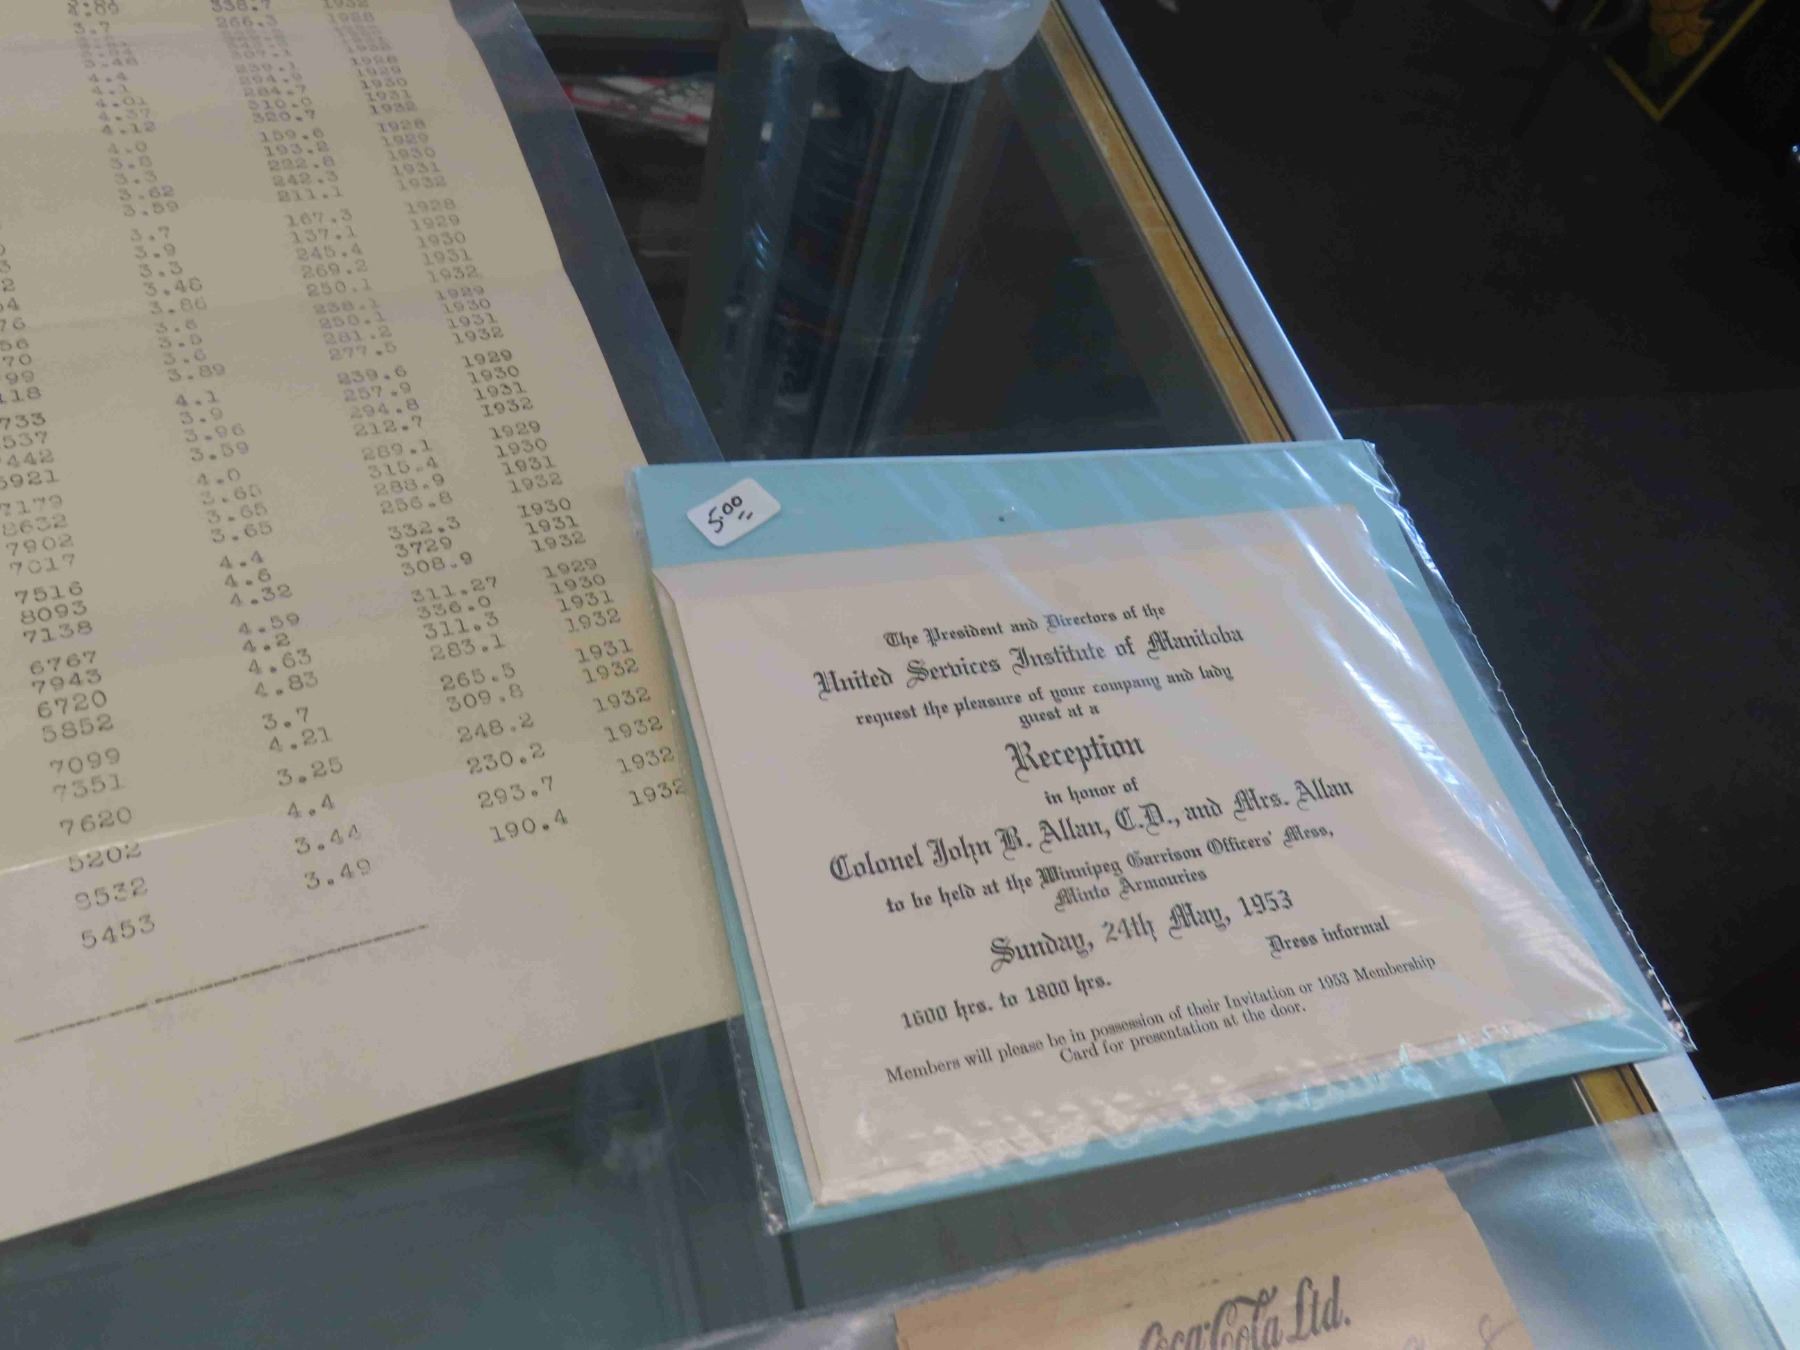 1932
266.3 1928
4.4
4.1 294.9 1929
4.01 284.7 1930
4.37 310.0 1931
4.12 320.7 1932
4.0 159.6 1928
3.8 193.2 1929
3.3 222.8 1930
3.62 242.3 1931
3.59 211.1 1932
3.7 167.3 1928
3.9 137.1 1929
3.3 245.4 1930
3.46 269.2 1931
3.86 250.1 1932
3.6 238.1 1929
3.5 250.1 1930
3.6 281.2 1931
3.89 277.5 1932
4.1 239.6 1929
3.9 257.9 1930
3.96 294.8 1931
3.59 212.7 1932
4.0 289.1 1929
3.65 315.4 1930
3.65 288.9 1931
3.65 256.8 1932
7516 4.4 332.3 1930
8093 4.6 3729 1931
7138 4.32 308.9 1932
6767 4.59 311.27 1929
7943 4.2 336.0 1930
6720 4.63 311.3 1931
5852 4.83 283.1 1932
7099 3.7 265.5 1931
7351 4.21 309.8 1932
7620 3.25 248.2 1932
5202 4.4 230.2 1932
9532 3.44 293.7 1932
5453 3.49 190.4 1932
5.00
The President and Directors of the
United Services Institute of Manitoba
request the pleasure of your company and lady
guest at a
Reception
in honor of
Colonel John B. Allan, C.D., and Mrs. Allan
to be held at the Winnipeg Garrison Officers' Mess,
Minto Armouries
Sunday, 24th May, 1953
Dress informal
1600 hrs. to 1800 hrs.
Members will please be in possession of their Invitation or 1953 Membership
Card for presentation at the door.
Coca-Cola Ltd.